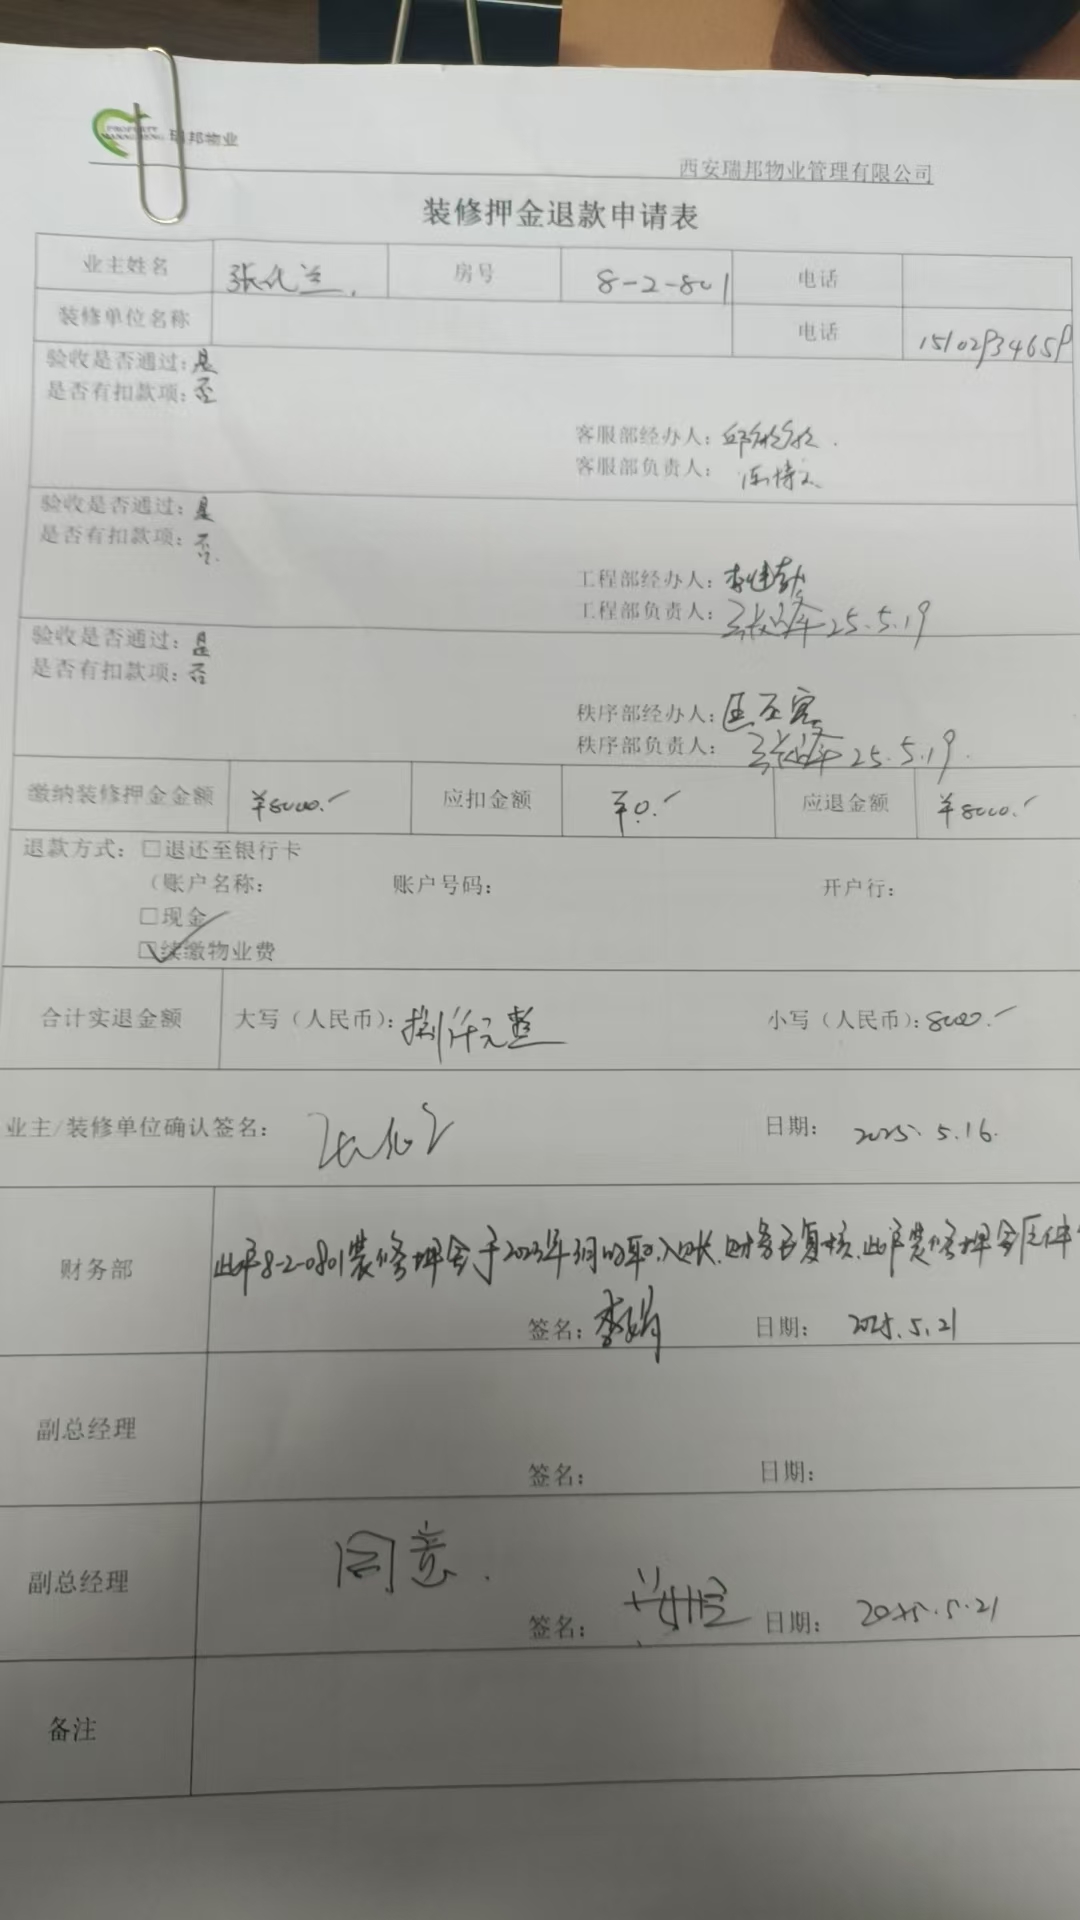 瑞邦物业
西安瑞邦物业管理有限公司
装修押金退款申请表
业主姓名 张化兰 房号 8-2-801 电话
装修单位名称 电话 15102934659
验收是否通过: 是
是否有扣款项: 否
客服部经办人:
客服部负责人:
验收是否通过: 是
是否有扣款项: 否
工程部经办人:
工程部负责人: 25.5.19
验收是否通过: 是
是否有扣款项: 否
秩序部经办人:
秩序部负责人: 25.5.19.
缴纳装修押金金额 ¥8000.- 应扣金额 ¥0.- 应退金额 ¥8000.-
退款方式: □退还至银行卡
(账户名称: 账户号码: 开户行:
□现金
☑续缴物业费
合计实退金额 大写(人民币): 捌仟元整 小写(人民币): 8000.-
业主/装修单位确认签名: 日期: 2025.5.16.
财务部 此户8-2-0801装修押金于2023年 入账,财务已复核,此户装修押金
签名: 李娟 日期: 2025.5.21
副总经理
签名: 日期:
副总经理 同意.
签名: 日期: 2025.5.21
备注